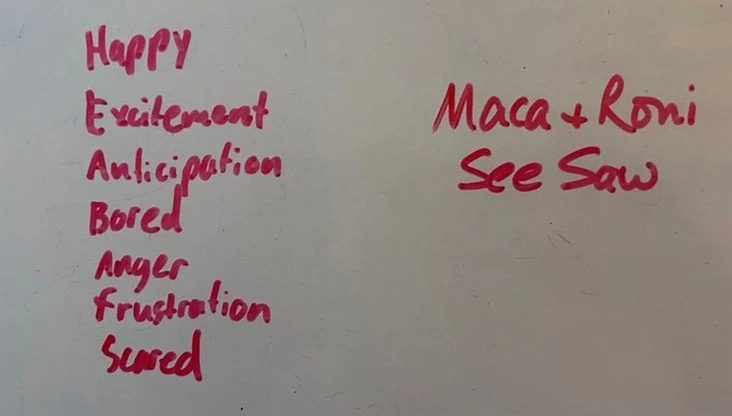 Happy
Excitement
Anticipation
Bored
Anger
Frustration
Scared
Maca + Roni
See Saw